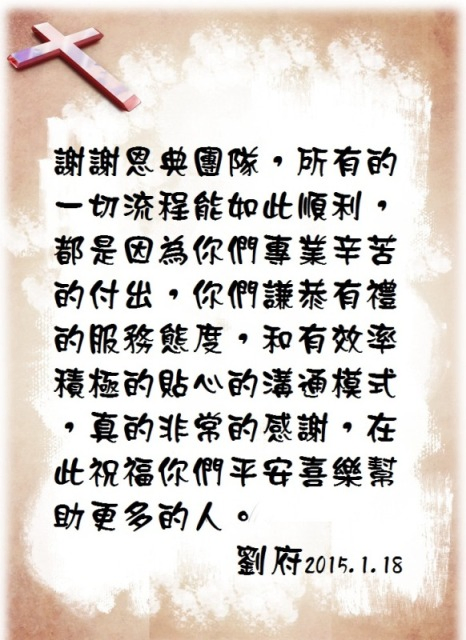 謝謝恩典團隊，所有的
一切流程能如此順利，
都是因為你們專業辛苦
的付出，你們謙恭有禮
的服務態度，和有效率
積極的貼心的溝通模式
，真的非常的感謝，在
此祝福你們平安喜樂幫
助更多的人。
劉府2015.1.18